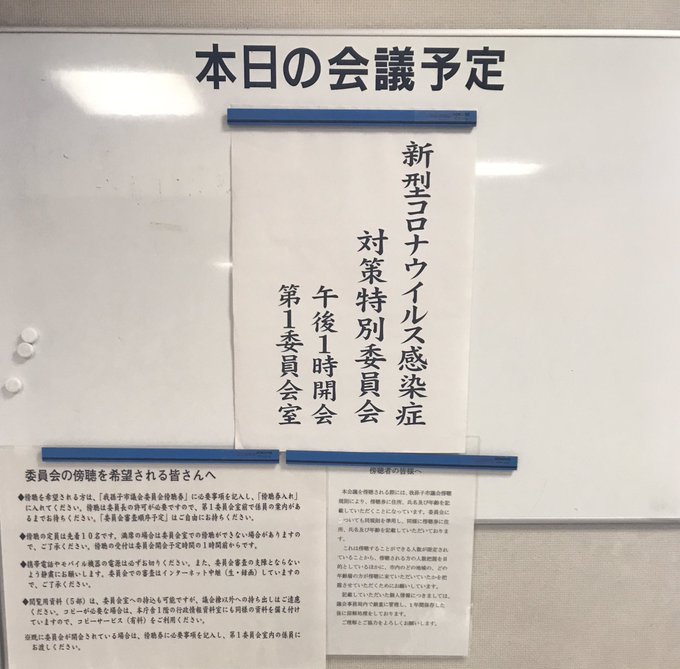 本日の会議予定
新型コロナウイルス感染症
対策特別委員会
午後1時開会
第1委員会室
委員会の傍聴を希望される皆さんへ
◆傍聴を希望される方は、「我孫子市議会委員会傍聴券」に必要事項を記入し、「傍聴券入れ」
に入れてください。傍聴は委員長の許可が必要ですので、第1委員会室前で係員の案内が
あるまでお待ちください。「委員会審査順序予定」はご自由にお持ちください。
◆傍聴の定員は先着10名です。満席の場合は委員会室での傍聴ができない場合がありますの
で、ご了承ください。傍聴の受付は委員会開会予定時間の1時間前からです。
◆携帯電話やモバイル機器の電源は必ずお切りください。また、委員会審査の支障とならない
よう静粛にお願いします。委員会での審査はインターネット中継（生・録画）していますので、
でご了承ください。
◆閲覧用資料（5部）は、委員会室への持込も可能ですが、議会棟以外への持ち出しはご遠慮
ください。コピーが必要な場合は、本庁舎1階の行政情報資料室にも同様の資料を備え付け
ていますので、コピーサービス（有料）をご利用ください。
※既に委員会が開会されている場合は、傍聴券に必要事項を記入し、第1委員会室内の係員に
お渡しください。
傍聴者の皆様へ
本会議を傍聴される際には、我孫子市議会傍聴
規則により、傍聴券に住所、氏名及び年齢を記
載していただくことになっています。委員会に
ついても同規則を準用し、同様に傍聴券に住
所、氏名及び年齢を記載していただいておりま
す。
これは傍聴することができる人数が限定され
ていることから、傍聴される方の人数把握を目
的としているほかに、市内のどの地域の、どの
年齢層の方が傍聴に来ていただいていたかを把
握させていただくためにお願いしています。
記載していただいた個人情報につきましては、
議会事務局内で厳重に管理し、1年間保存した
後に溶解処理をしております。
ご理解とご協力をよろしくお願いします。